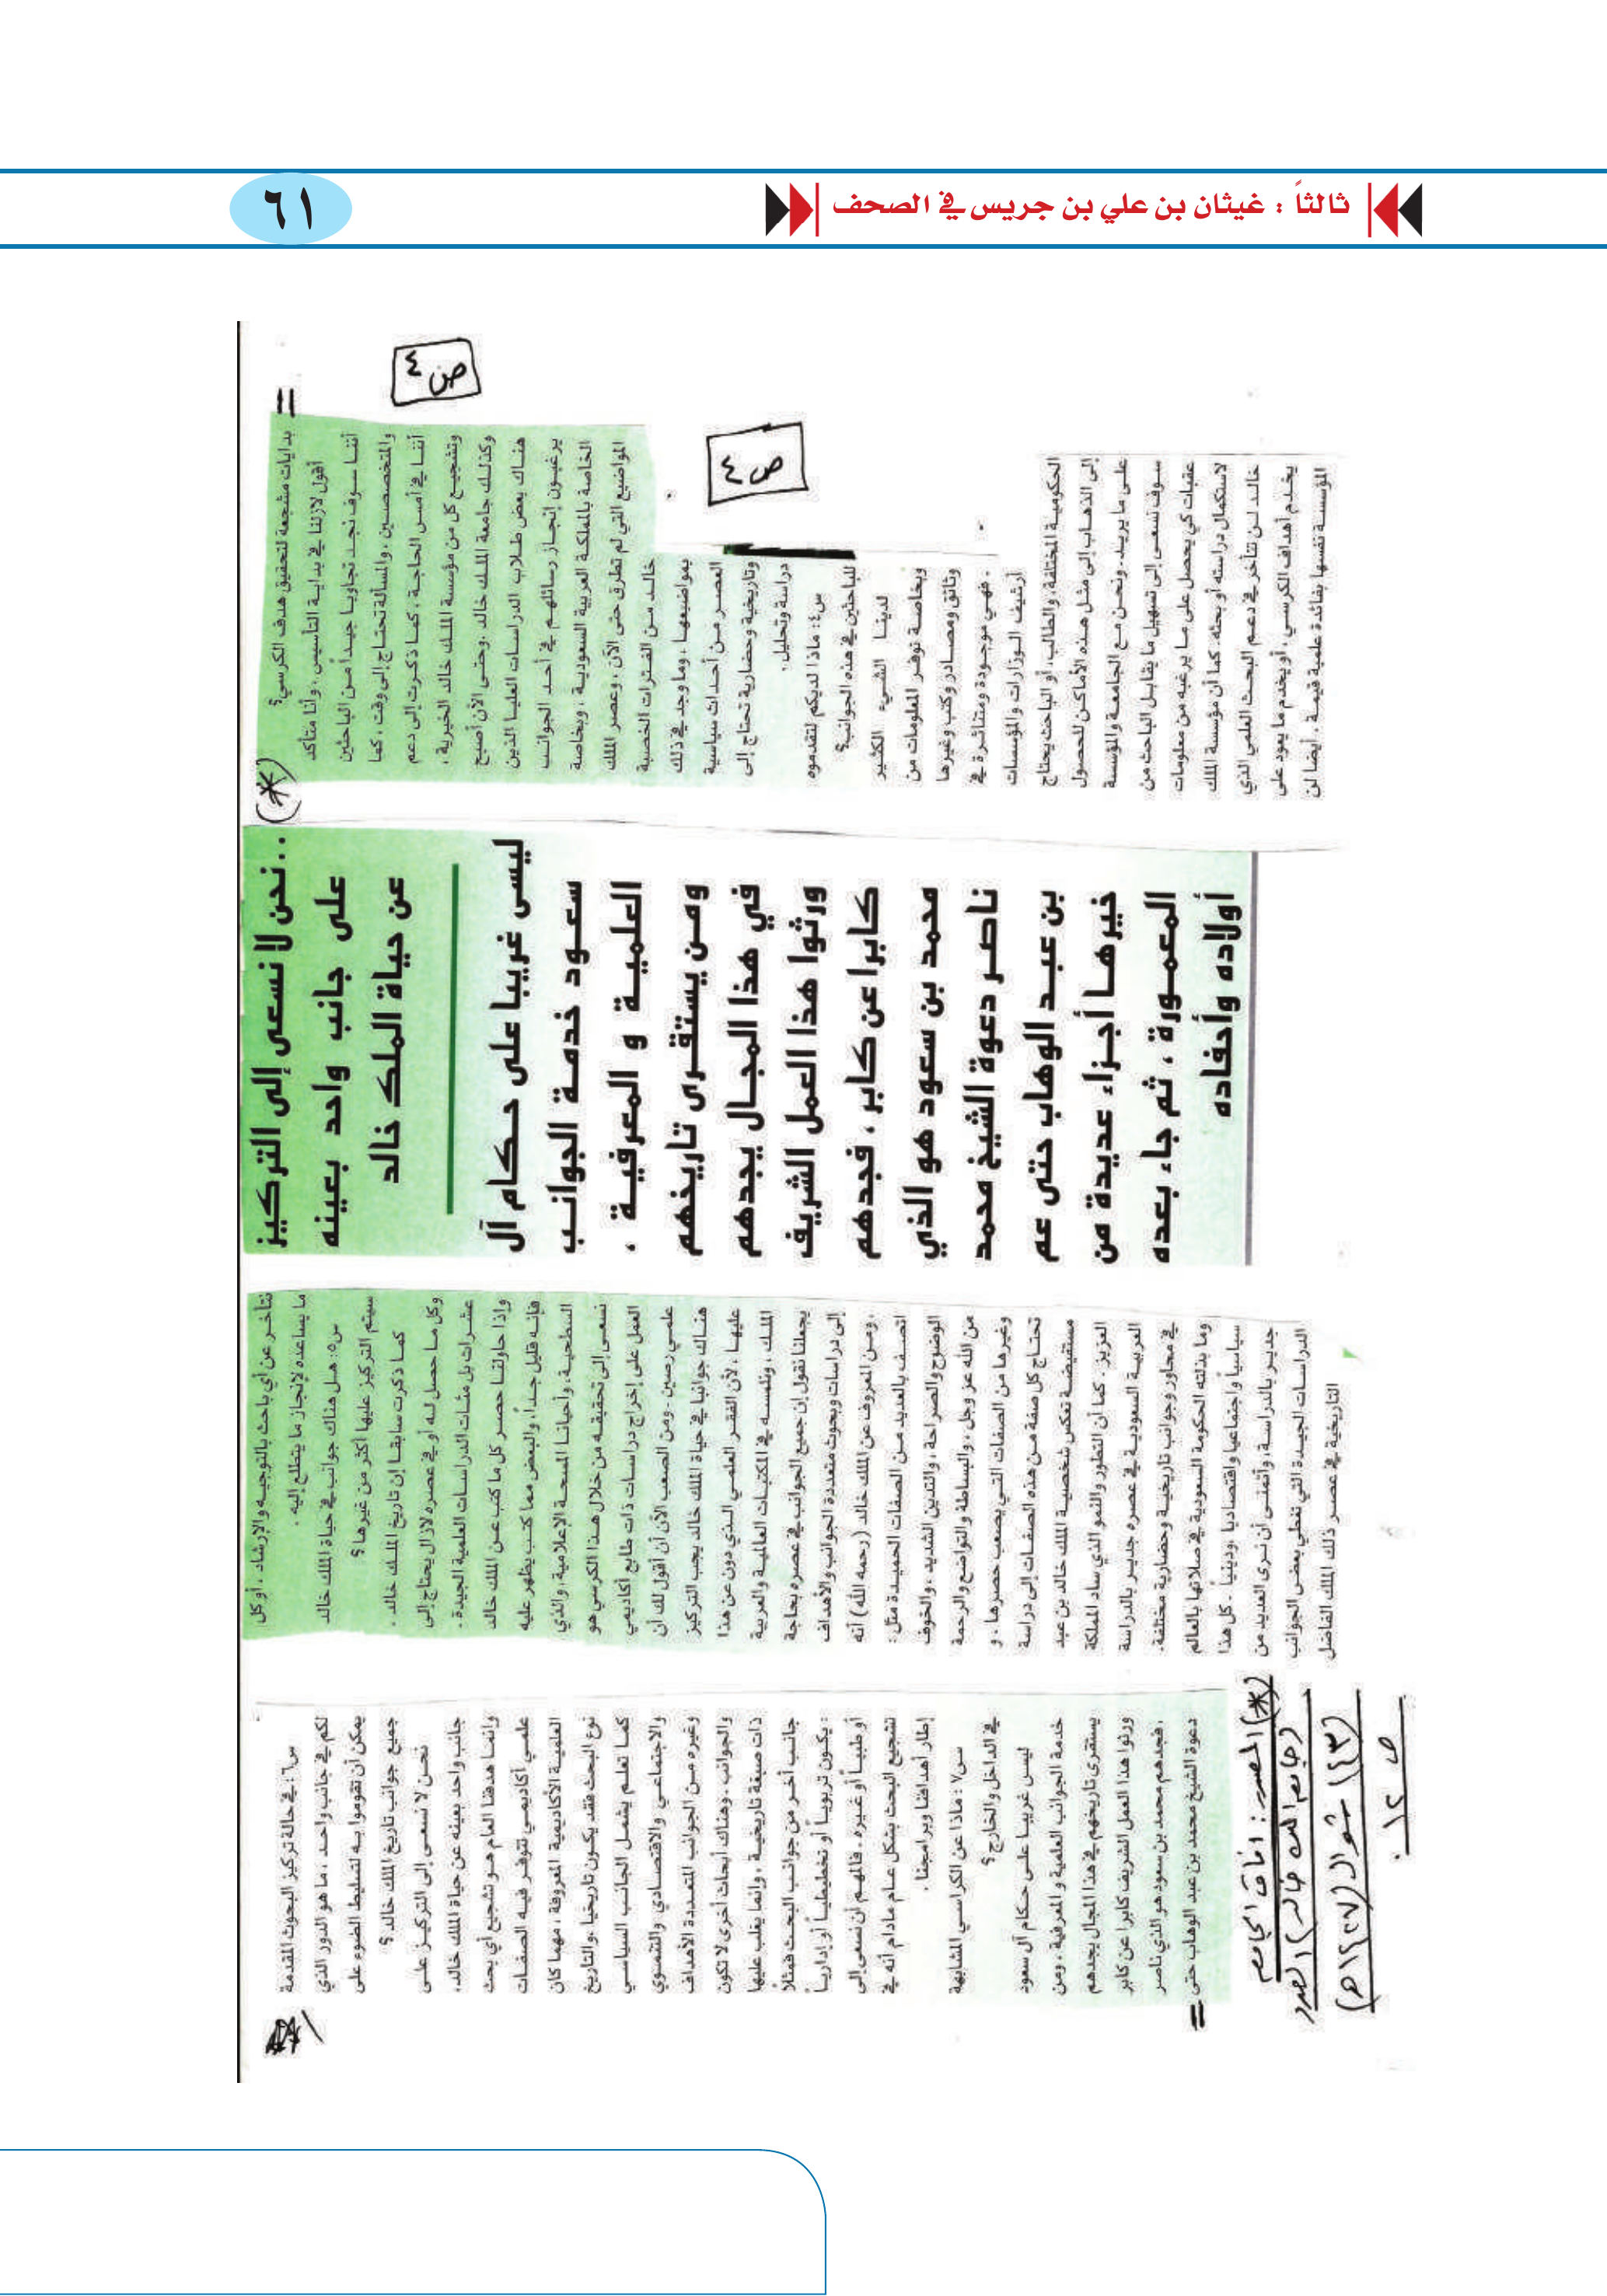 ثالثاً : غيثان بن علي بن جريس في الصحف
٦١
ص٤
ص٤
=
بدايات مشجعة لتحقيق هدف الكرسي؟
أقول لازلنا في بداية التأسيس ، وأنا متأكد
أننا سوف نجد تجاوبا جيداً من الباحثين
والمتخصصين ، والمسألة تحتاج إلى وقت ، كما
أننا في أمس الحاجة ، كما ذكرت إلى دعم
وتشجيع كل من مؤسسة الملك خالد الخيرية ،
وكذلك جامعة الملك خالد .وحتى الآن أصبح
هناك بعض طلاب الدراسات العليا الذين
يرغبون إنجاز رسائلهم في أحد الجوانب
الخاصة بالمملكة العربية السعودية ، وبخاصة
المواضيع التي لم تطرق حتى الآن ، وعصر الملك
خالد من الفترات الخصبة
بمواضيعها ، وما وجد في ذلك
العصر من أحداث سياسية
وتاريخية وحضارية تحتاج إلى
دراسة وتحليل .
س٤: ماذا لديكم لتقدموه
للباحثين في هذه الجوانب؟
لدينا الشيء الكثير
وبخاصة توفر المعلومات من
وثائق ومصادر وكتب وغيرها
، فهي موجودة ومتناثرة في
أرشيف الوزارات والمؤسسات
الحكومية المختلفة، والطالب، أو الباحث يحتاج
إلى الذهاب إلى مثل هذه الأماكن للحصول
على ما يريد. ونحن مع الجامعة والمؤسسة
سوف نسعى إلى تسهيل ما يقابل الباحث من
عقبات كي يحصل على ما يرغبه من معلومات
لاستكمال دراسته أو بحثه. كما أن مؤسسة الملك
خالد لن تتأخر في دعم البحث العلمي الذي
يخدم أهداف الكرسي، أو يخدم ما يعود على
المؤسسة نفسها بفائدة علمية قيمة . أيضا لن
(*)
..نحن لا نسعى إلى التركيز
على جانب واحد بعينه
عن حياة الملك خالد
ليس غريبا على حكام آل
سعود خدمة الجوانب
العلمية و المعرفية ،
ومن يستقرى تاريخهم
في هذا المجال يجدهم
ورثوا هذا العمل الشريف
كابرا عن كابر ، فجدهم
محمد بن سعود هو الذي
ناصر دعوة الشيخ محمد
بن عبد الوهاب حتى عم
خيرها أجزاء عديدة من
المعمورة ، ثم جاء بعده
أولاده وأحفاده
نتأخر عن أي باحث بالتوجيه والإرشاد ، أو كل
ما يساعده لإنجاز ما يتطلع إليه .
س٥: هل هناك جوانب في حياة الملك خالد
سيتم التركيز عليها أكثر من غيرها ؟
كما ذكرت سابقا إن تاريخ الملك خالد .
وكل ما حصل له أو في عصره لازال يحتاج إلى
عشرات بل مئات الدراسات العلمية الجيدة .
وإذا حاولنا حصر كل ما كتب عن الملك خالد
فإنه قليل جداً، والبعض مما كتب يظهر عليه
السطحية، وأحيانا المسحة الإعلامية، والذي
نسعى إلى تحقيقه من خلال هذا الكرسي هو
العمل على إخراج دراسات ذات طابع أكاديمي
علمي رصين . ومن الصعب الآن أن أقول لك أن
هناك جوانبا في حياة الملك خالد يجب التركيز
عليها ، لأن الفقر العلمي الذي دون عن هذا
الملك ، ونلمسه في المكتبات العالمية والعربية
يجعلنا نقول إن جميع الجوانب في عصره بحاجة
إلى دراسات وبحوث متعددة الجوانب والأهداف
، ومن المعروف عن الملك خالد (رحمه الله) أنه
اتصف بالعديد من الصفات الحميدة مثل :
الوضوح والصراحة، والتدين الشديد ، والخوف
من الله عز وجل ، والبساطة والتواضع والرحمة
وغيرها من الصفات التي يصعب حصرها ، و
تحتاج كل صفة من هذه الصفات إلى دراسة
مستفيضة تعكس شخصية الملك خالد بن عبد
العزيز . كما أن التطور والنمو الذي ساد المملكة
العربية السعودية في عصره جدير بالدراسة
في محاور وجوانب تاريخية وحضارية مختلفة.
وما بذلته الحكومة السعودية في صلاتها بالعالم
سياسياً واجتماعيا واقتصاديا ،ودينياً . كل هذا
جدير بالدراسة، وأتمنى أن نرى العديد من
الدراسات الجيدة التي تغطي بعض الجوانب
التاريخية في عصر ذلك الملك الفاضل
س٦: في حالة تركيز البحوث المقدمة
لكم في جانب واحد ، ما هو الدور الذي
يمكن أن تقوموا به لتسليط الضوء على
جميع جوانب تاريخ الملك خالد ؟
نحن لا نسعى إلى التركيز على
جانب واحد بعينه عن حياة الملك خالد،
وإنما هدفنا العام هو تشجيع أي بحث
علمي أكاديمي تتوفر فيه الصفات
العلمية الأكاديمية المعروفة ، مهما كان
نوع البحث فقد يكون تاريخيا ،والتاريخ
كما تعلم يشمل الجانب السياسي
والاجتماعي والاقتصادي والتنموي
وغيره من الجوانب المتعددة الأهداف
والجوانب . وهناك أبحاث أخرى لا تكون
ذات صبغة تاريخية ، وإنما يغلب عليها
جانب آخر من جوانب البحث فمثلاً
: يكون تربوياً أو تخطيطياً أو إدارياً
أو طبياً أو غيره . فالمهم أن نسعى إلى
تشجيع البحث بشكل عام مادام أنه في
إطار أهدافنا وبرامجنا .
س٧ : ماذا عن الكراسي المشابهة
في الداخل والخارج ؟
ليس غريبا على حكام آل سعود
خدمة الجوانب العلمية و المعرفية ، ومن
يستقرى تاريخهم في هذا المجال يجدهم
ورثوا هذا العمل الشريف كابرا عن كابر
، فجدهم محمد بن سعود هو الذي ناصر
دعوة الشيخ محمد بن عبد الوهاب حتى
=
(*) المصدر : آفاق الجامعة
(جامعة الملك خالد) العدد
(٢٣) شوال (١٤٢٧هـ)
ص ١٢ .